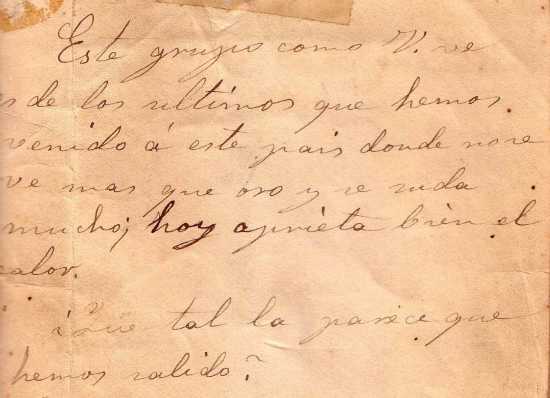 Este grupo como V. ve
es de los ultimos que hemos
venido á este pais donde no se
ve mas que oro y se suda
mucho; hoy aprieta bièn el
calor.
¿Que tal la parece que
hemos salido?